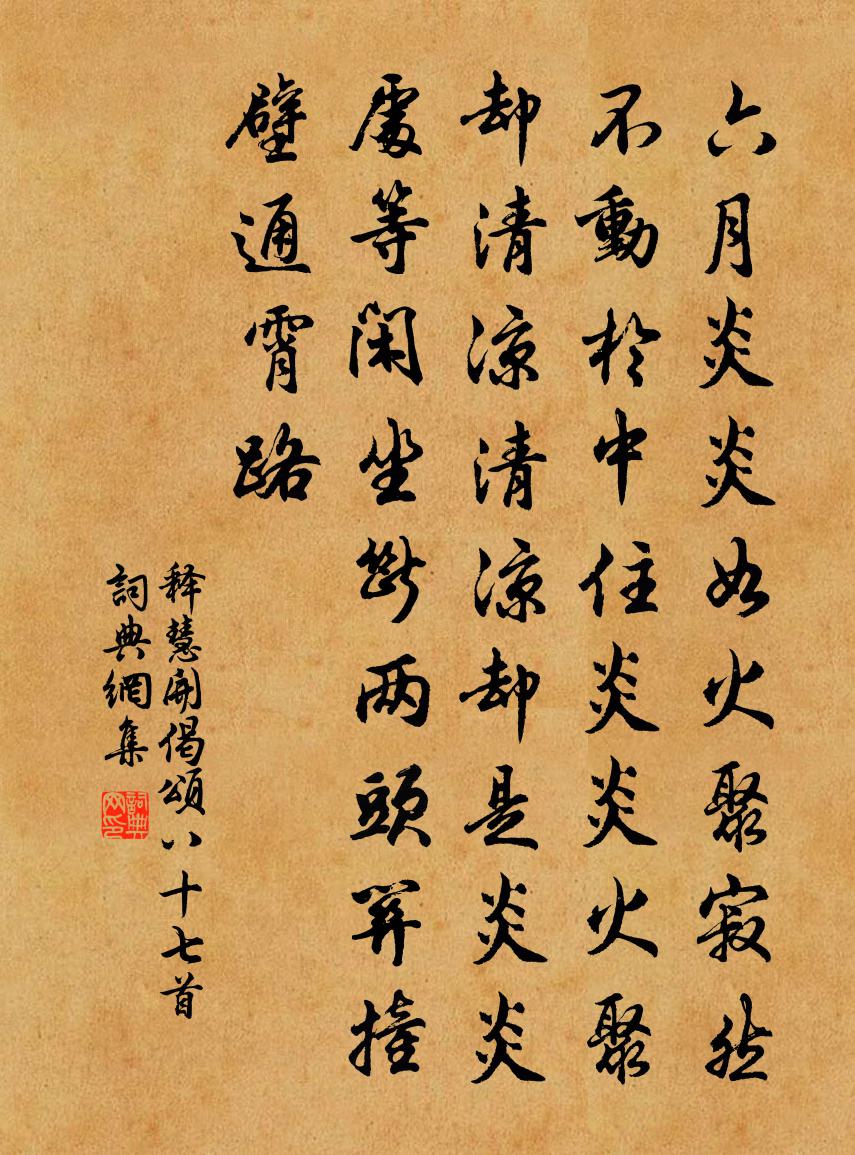 六月炎炎如火聚寂然
不動於中住炎炎火聚
却清涼清涼却是炎炎
處等閑坐斷两頭撞
壁通霄路
释慧開偈頌八十七首
詞典網集
詞典网印